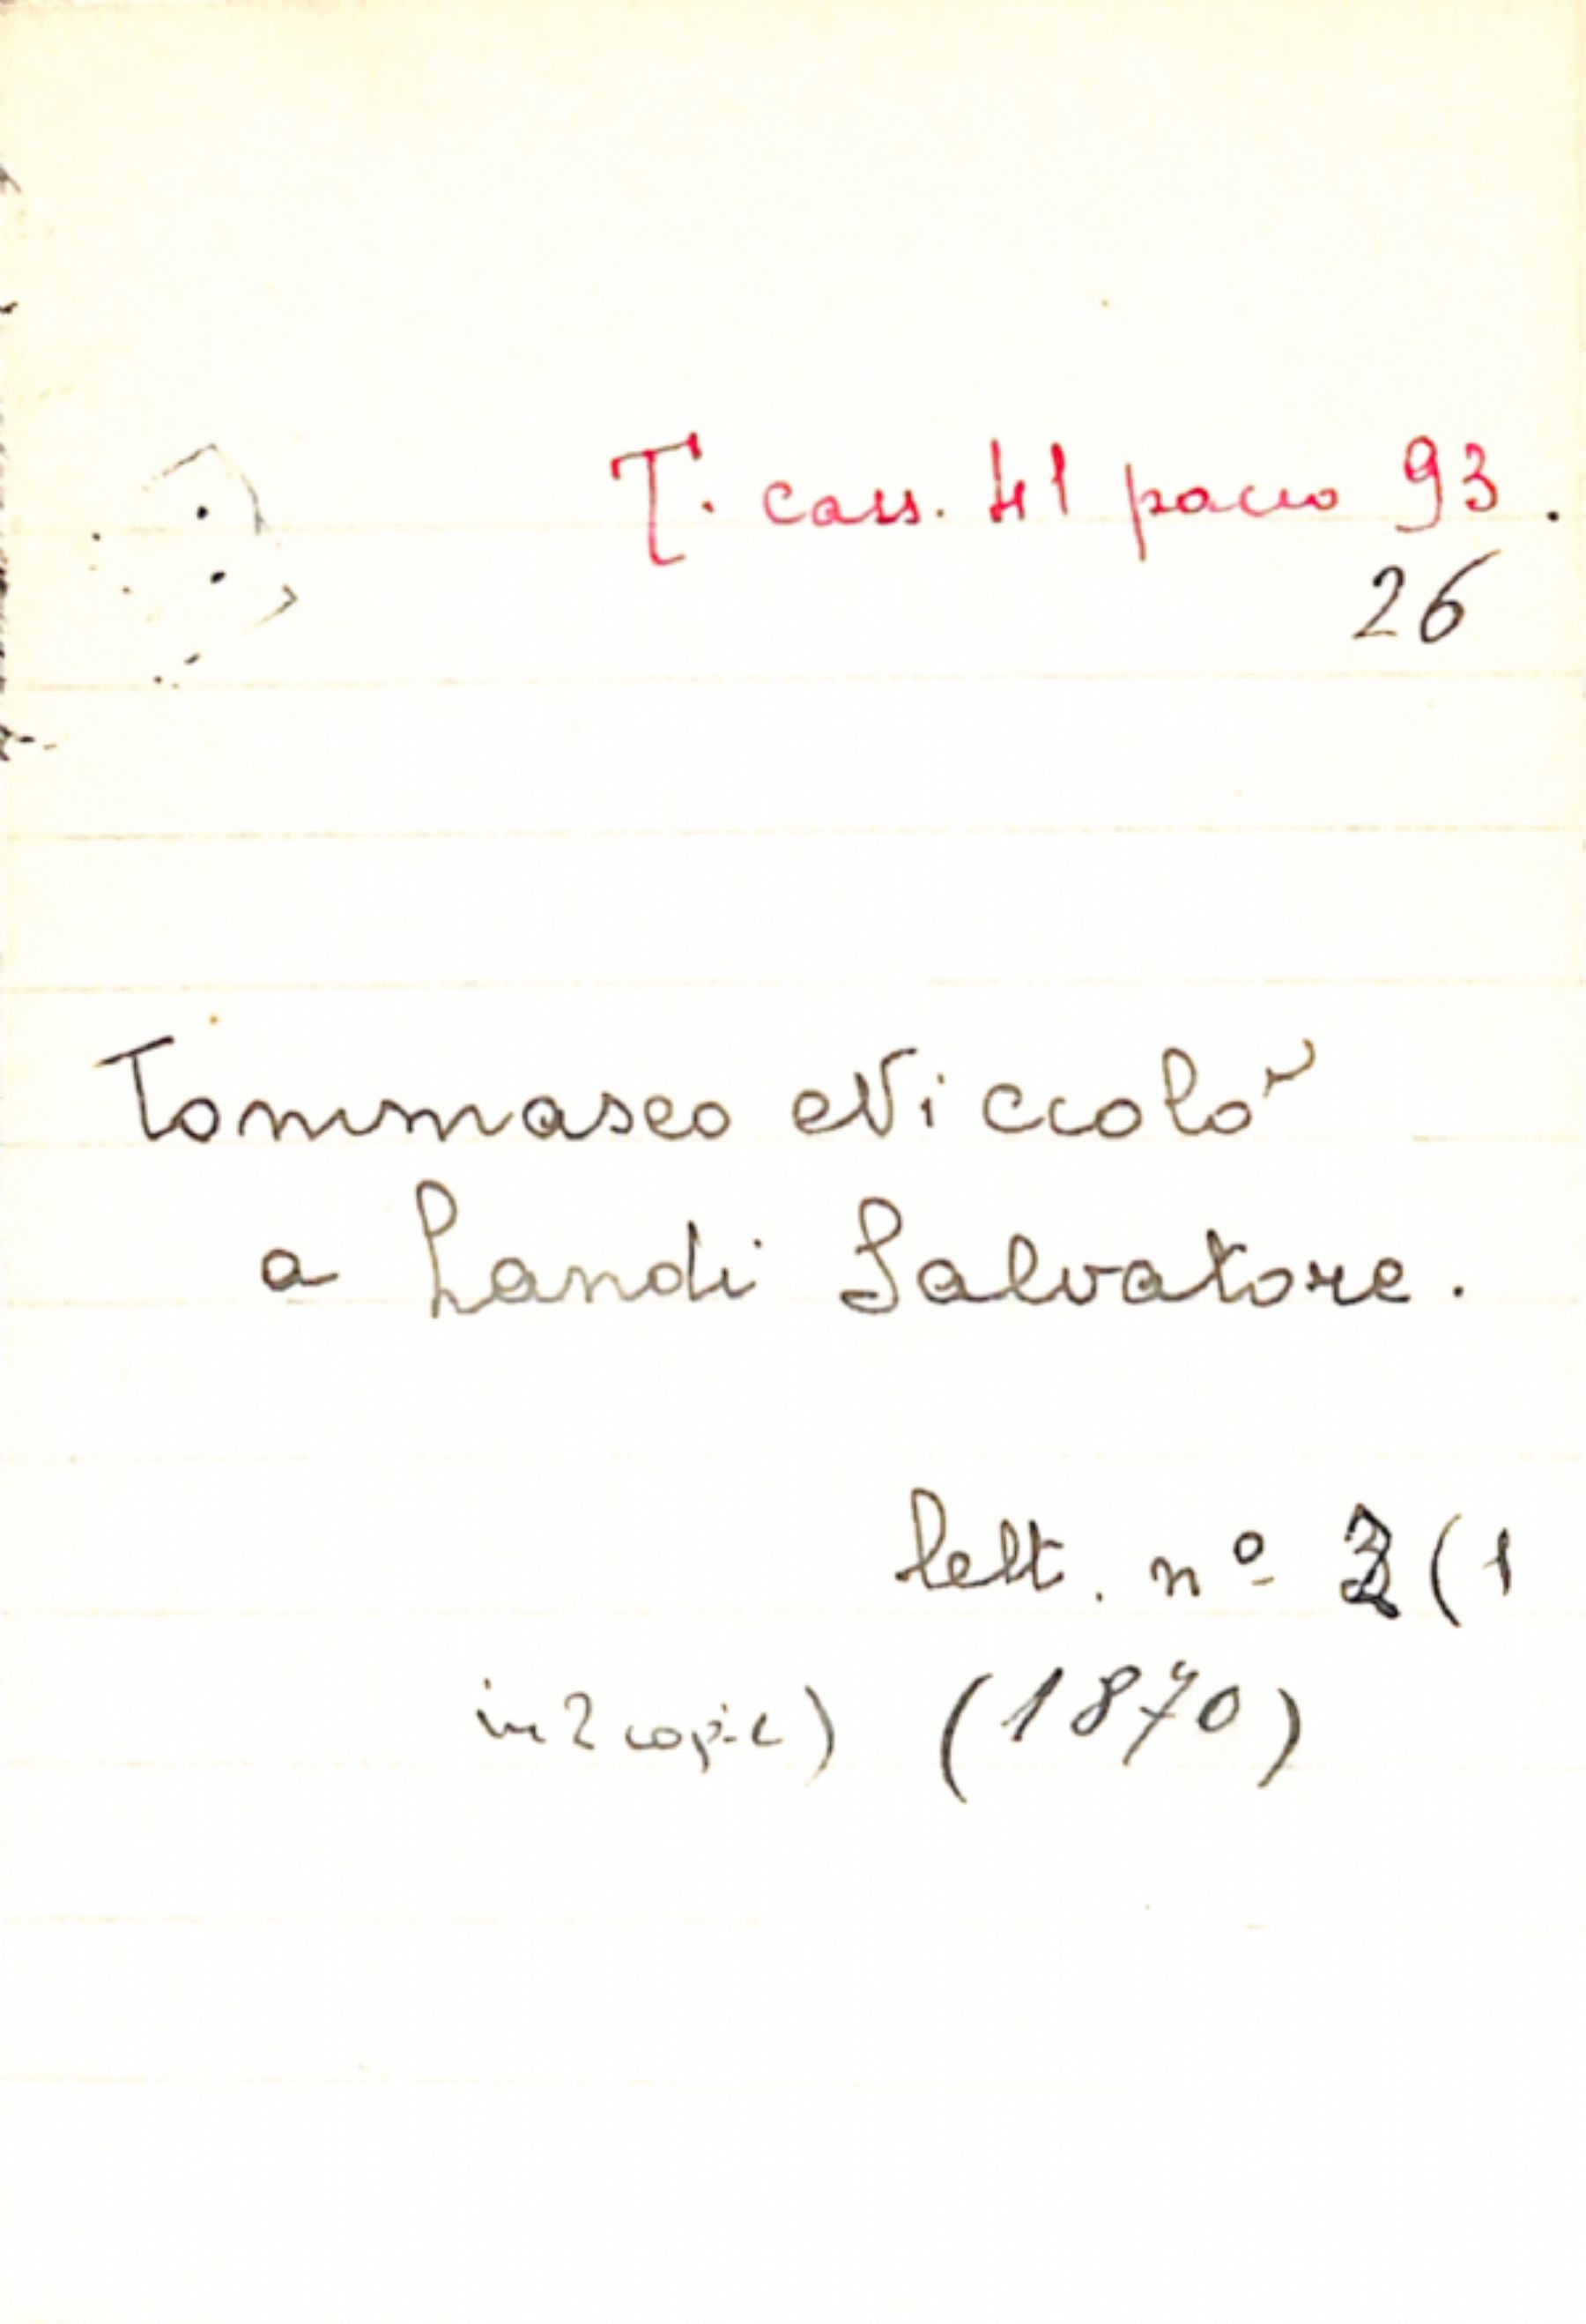 T. cass. 41 pacco 93.
26
Tommaseo Niccolò
a Landi Salvatore.
lett. nº (1
in 2 copie) (1870)